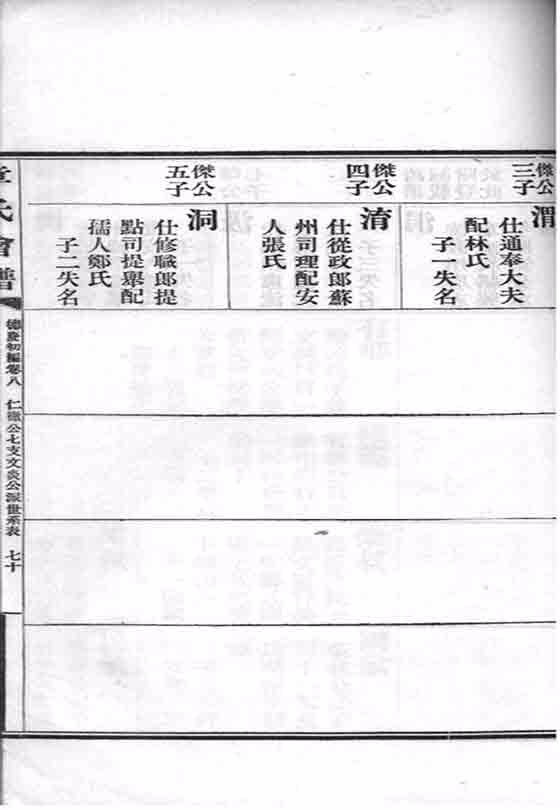 傑公
三子
渭
仕通奉大夫
配林氏
子一失名
傑公
四子
淯
仕從政郎蘇
州司理配安
人張氏
傑公
五子
洞
仕修職郎提
點司提舉配
孺人鄭氏
子二失名
章氏會譜
德慶初編卷八
仁徹公七支文炎公派世系表
七十